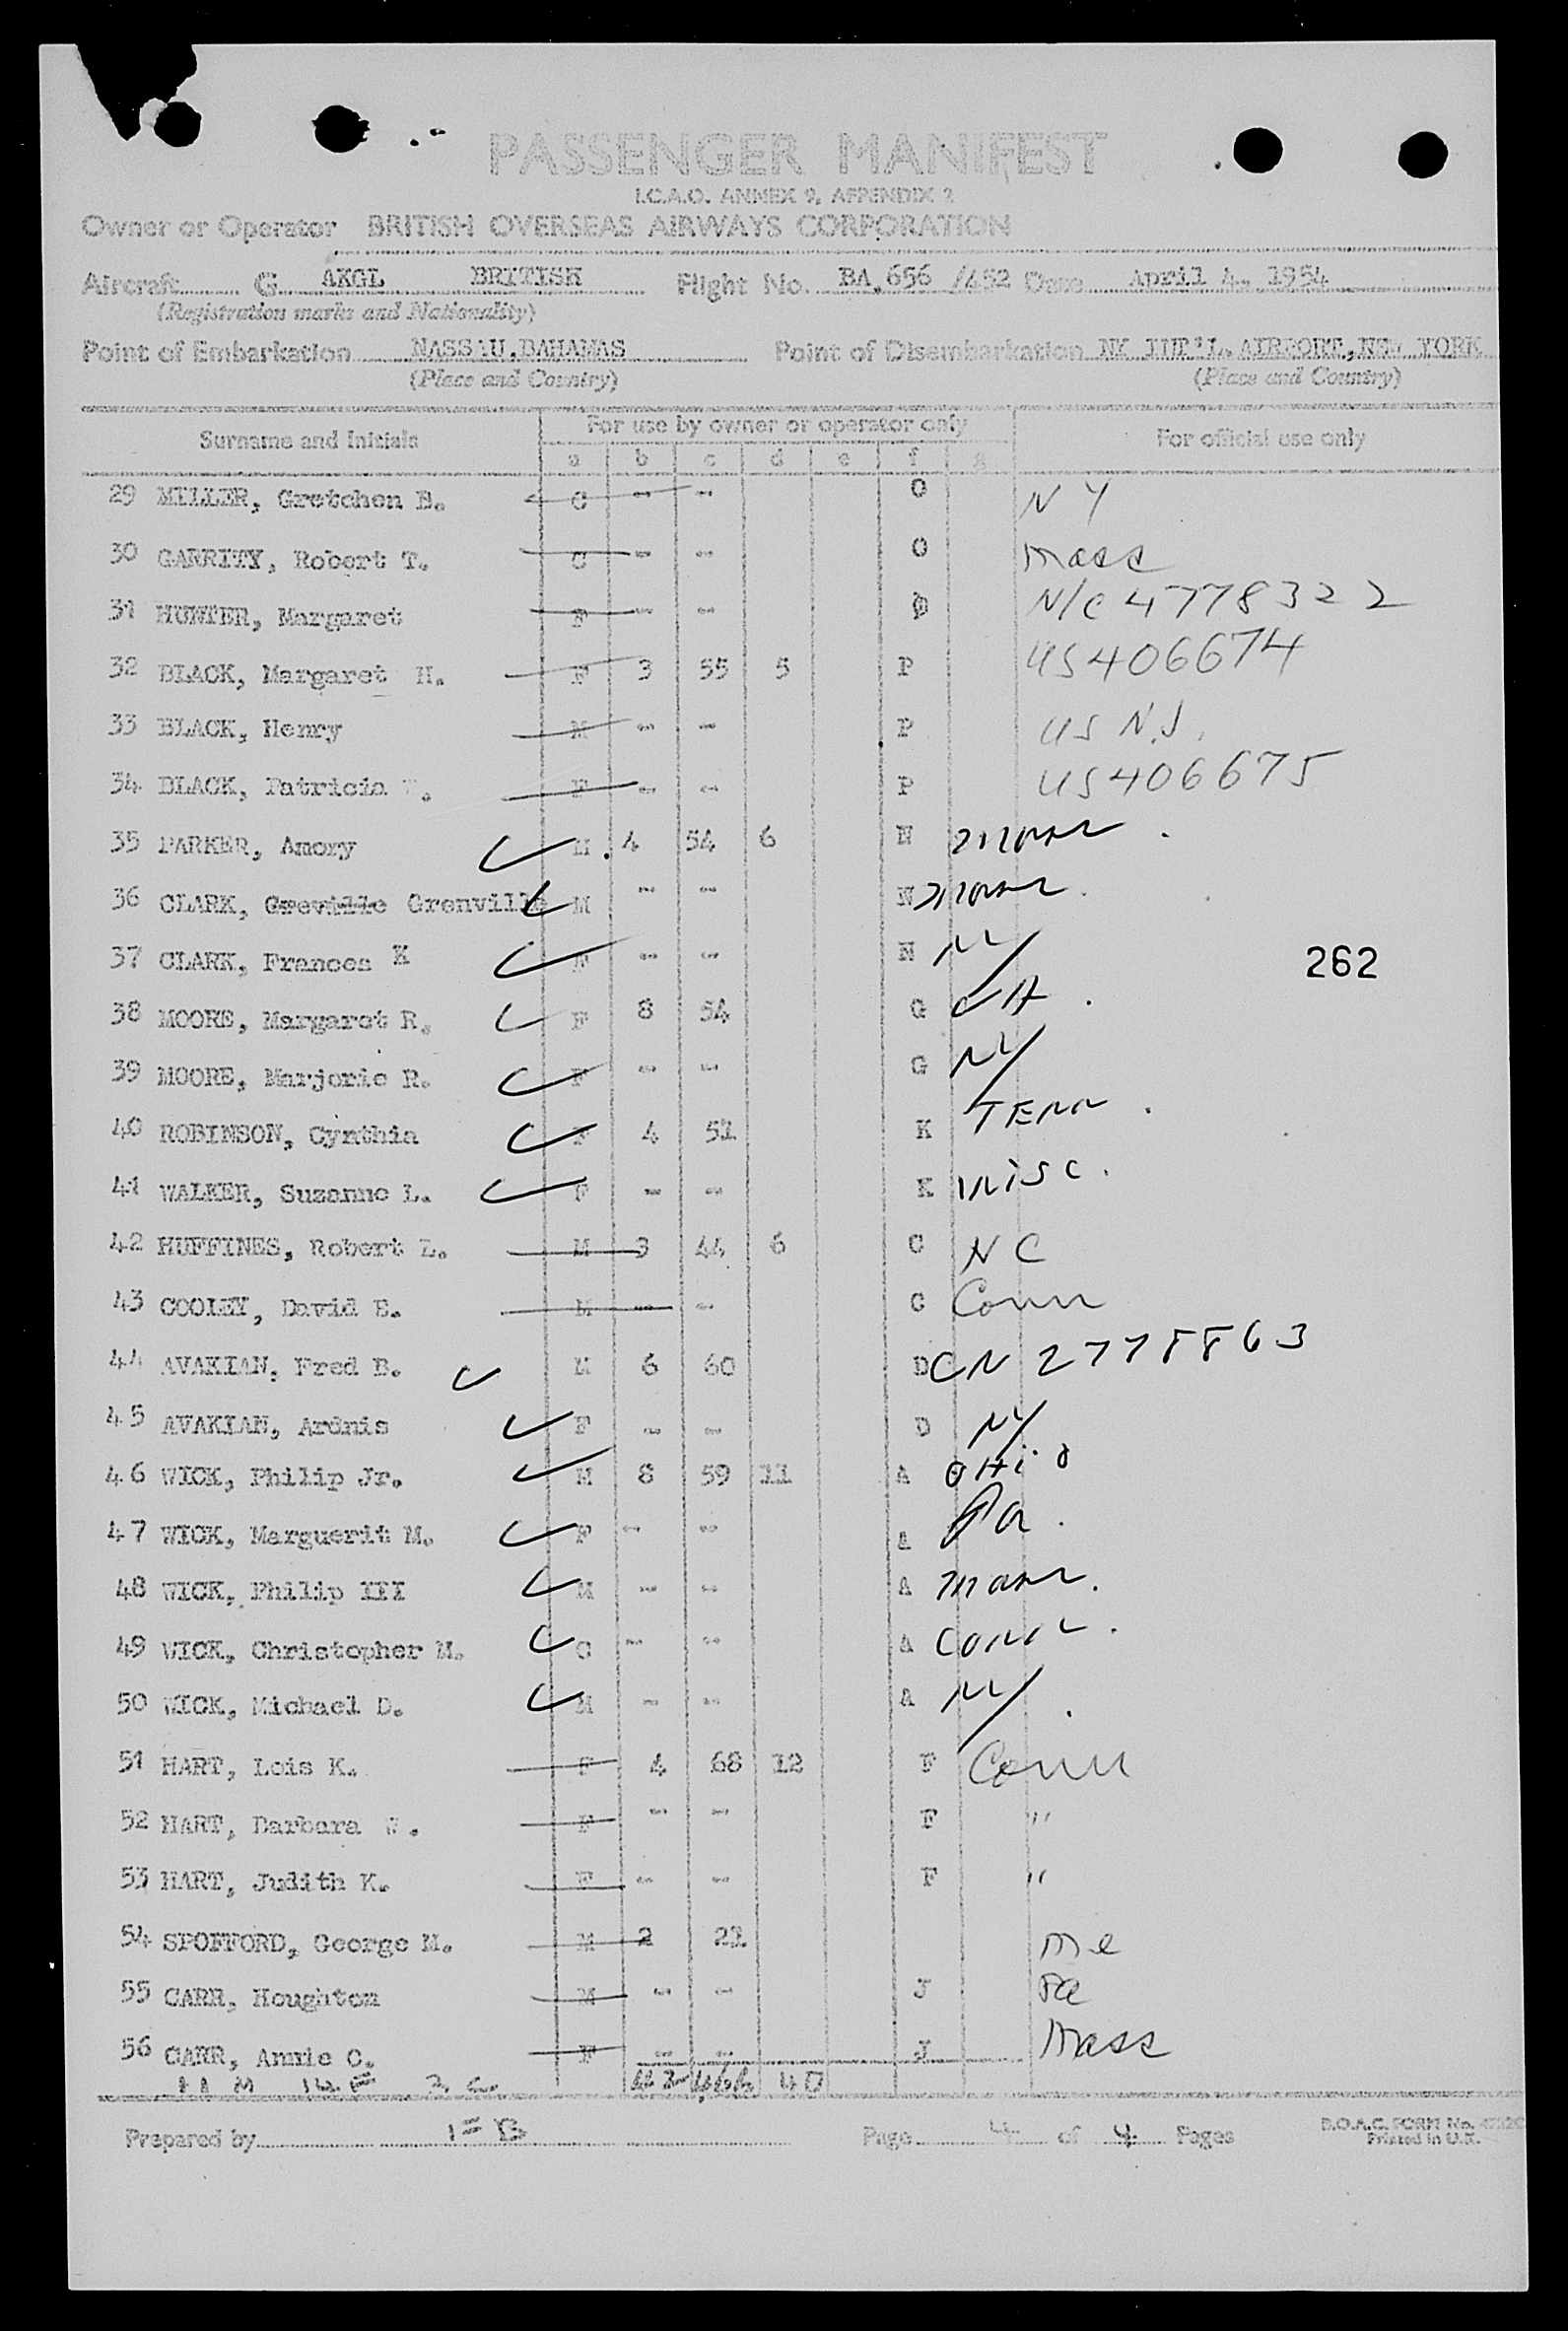 PASSENGER MANIFEST
I.C.A.O. ANNEX 9, APPENDIX 2
Owner or Operator BRITISH OVERSEAS AIRWAYS CORPORATION
Aircraft G AKGL BRITISH Flight No. BA.656 /452 Date April 4, 1954
(Registration marks and Nationality)
Point of Embarkation NASSAU, BAHAMAS Point of Disembarkation NY INT'L AIRPORT, NEW YORK
(Place and Country) (Place and Country)
Surname and Initials For use by owner or operator only For official use only
a b c d e f g
29 MILLER, Gretchen B. C - - O NY
30 GARRITY, Robert T. C - - O Mass
31 HUNTER, Margaret F - - O N/C 4778322
32 BLACK, Margaret H. F 3 55 5 P US 406674
33 BLACK, Henry M - - P US N.J.
34 BLACK, Patricia F - - P US 406675
35 PARKER, Amory M 4 54 6 N Mass.
36 CLARK, Greville Grenville M - - N Mass.
37 CLARK, Frances K F - - N NY
262
38 MOORE, Margaret R. F 8 54 G VA.
39 MOORE, Marjorie R. F - - G NY
40 ROBINSON, Cynthia F 4 51 K TENN.
41 WALKER, Suzanne L. F - - K WISC.
42 HUFFINES, Robert L. M 3 44 6 C NC
43 COOLEY, David E. M - - C Conn
44 AVAKIAN, Fred B. M 6 60 D CN 2778863
45 AVAKIAN, Ardnis F - - D NY
46 WICK, Philip Jr. M 8 59 11 A OHIO
47 WICK, Marguerit M. F - - A Pa.
48 WICK, Philip III M - - A Mass.
49 WICK, Christopher M. C - - A Conn.
50 WICK, Michael D. M - - A NY.
51 HART, Lois K. F 4 68 12 F Conn
52 HART, Barbara W. F - - F "
53 HART, Judith K. F - - F "
54 SPOFFORD, George M. M 2 21 Me
55 CARR, Houghton M - - J Pa
56 CARR, Annie C. F - - J Mass
42 466 40
Prepared by Page 4 of 4 Pages
B.O.A.C. FORM No.
Printed in U.K.